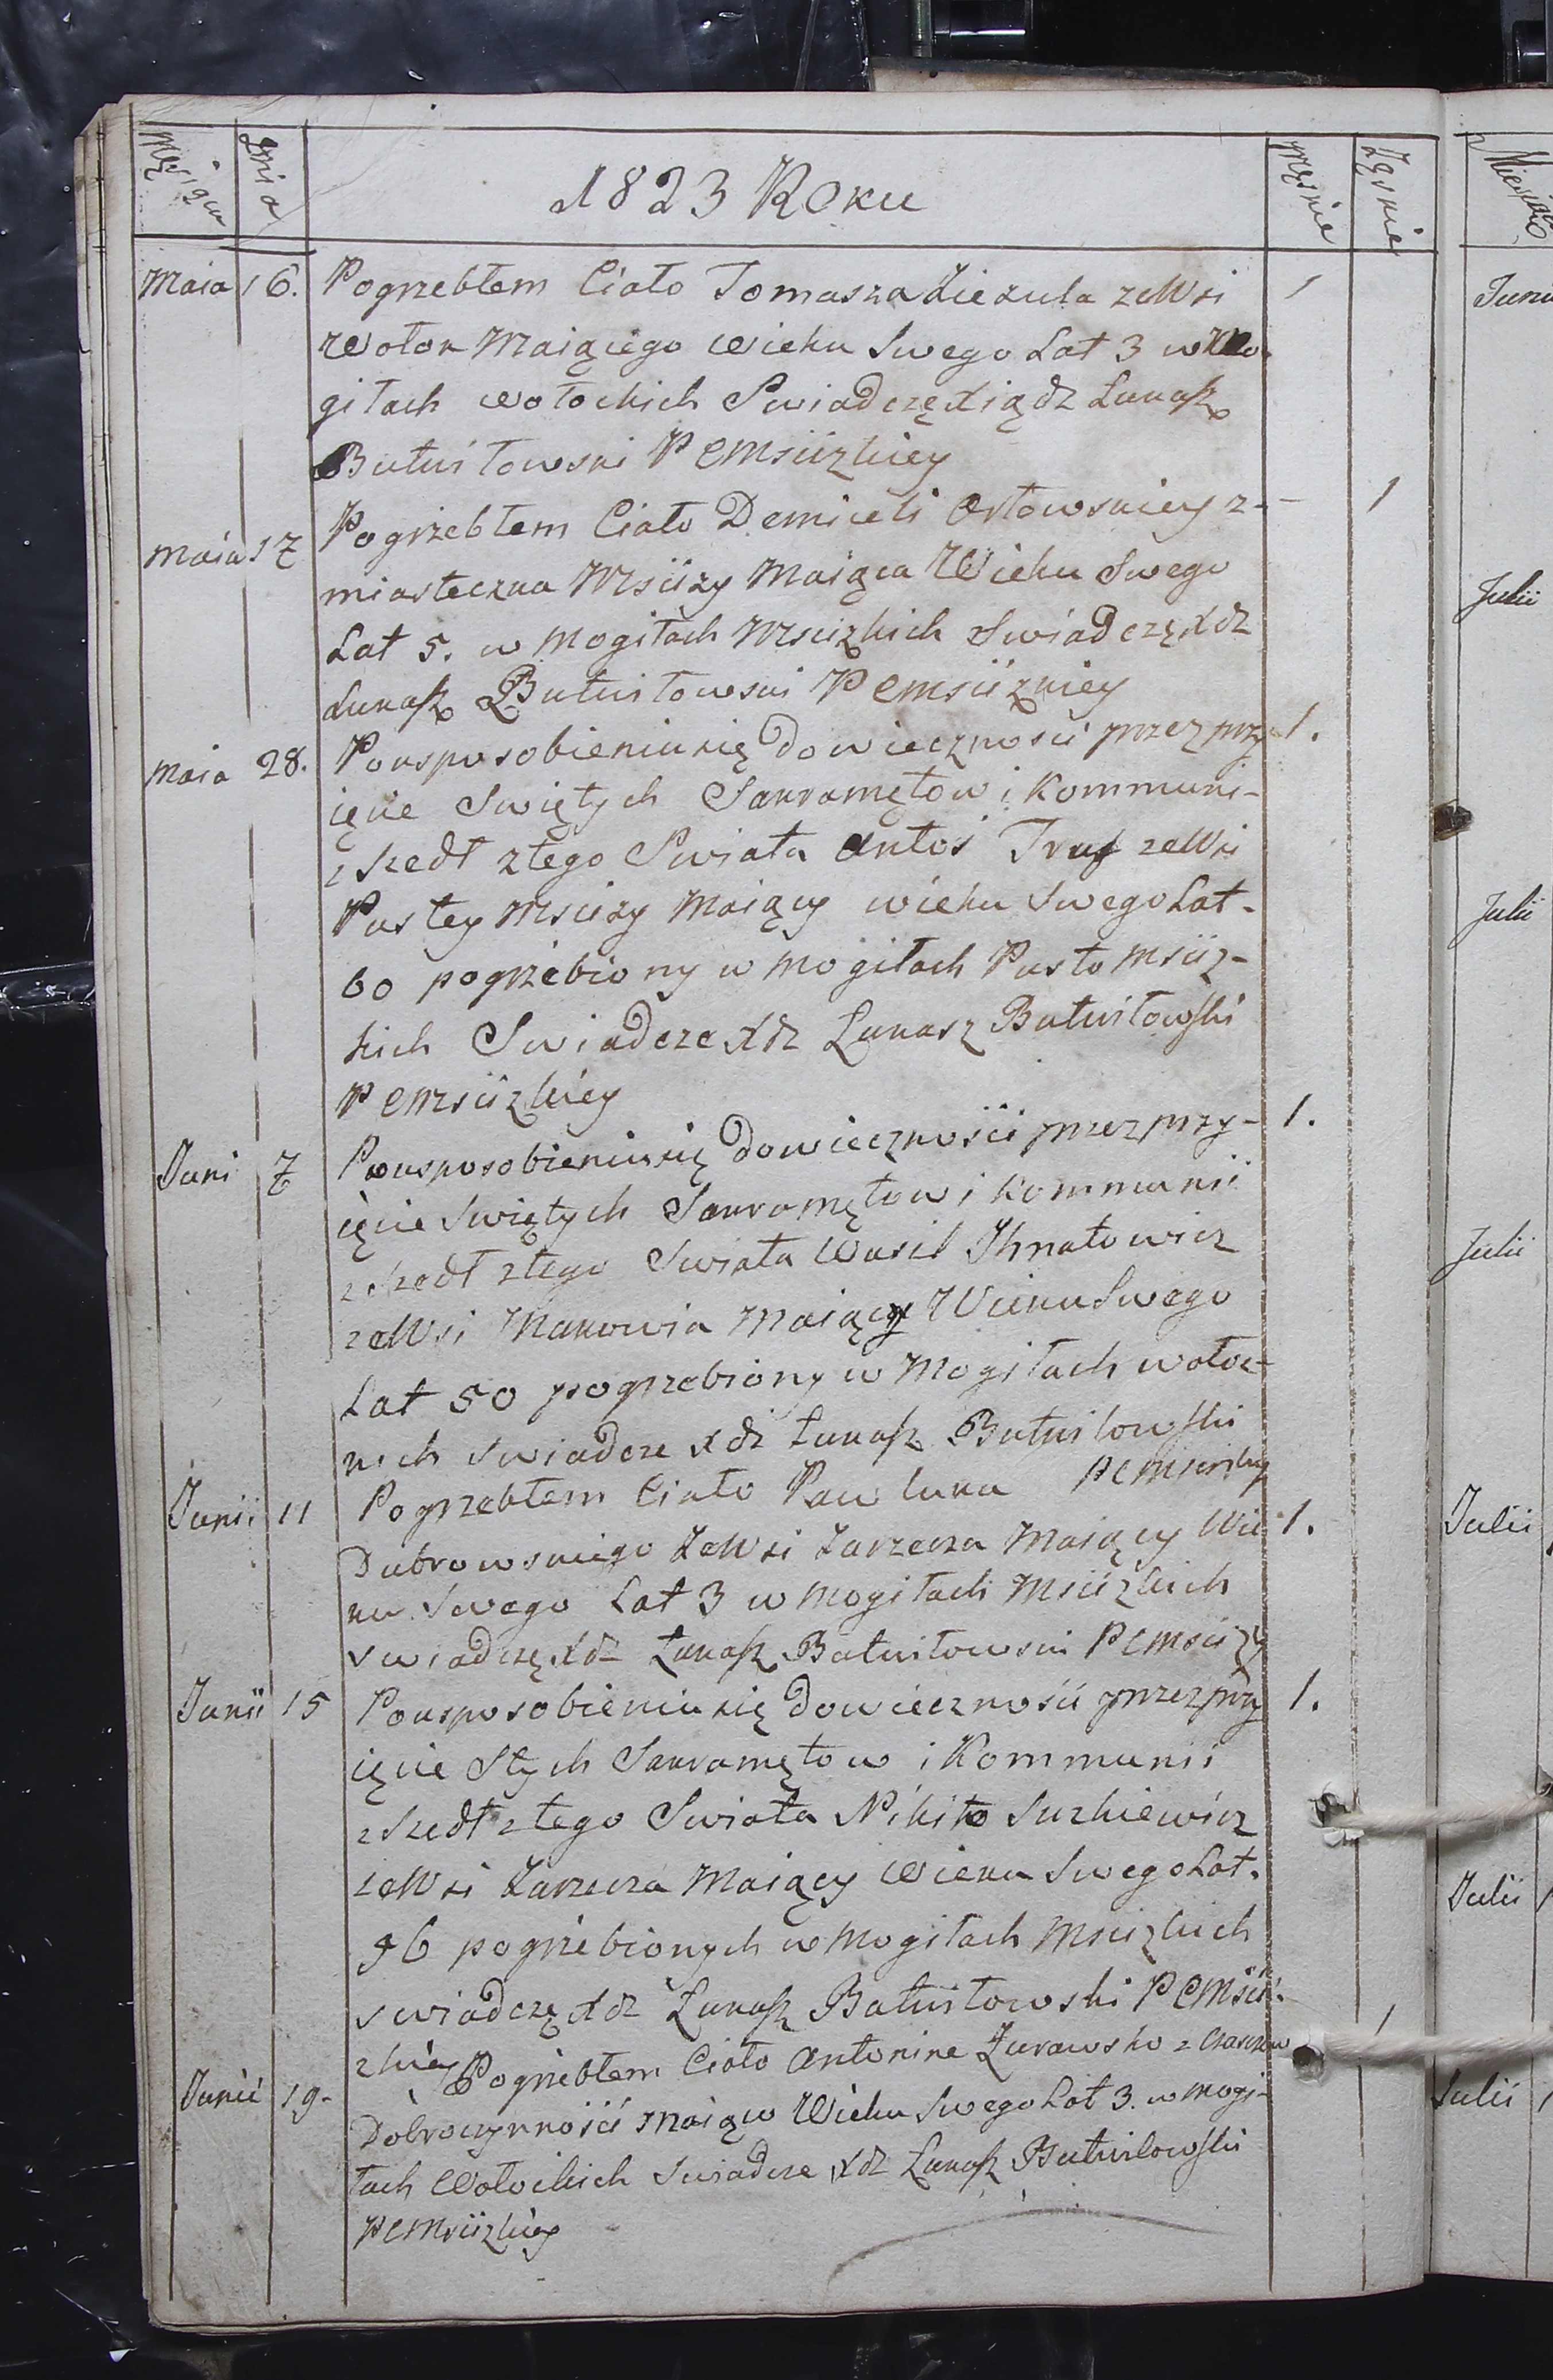 Męsiąca Dnia 1823 Roku Męskie Żęskie
Maia 16. Pogrzebłem Ciało Tomasza Ziezula zeWsi 1
Wołok Maiącego wieku Swego Lat 3 w Mo-
giłach wołockich Swiadczę Xiądz Łukasz
Butwiłowski P C Msciizkiey
Maia 17 Pogrzebłem Ciało Demiceli Orłowskiey z- - 1
miasteczka Msciizy Maiąca Wieku Swego
Lat 5. w Mogiłach Mscizkich Swiadczę Xdz
Łukasz Butwiłowski P C Msciizkiey
Maia 28. Pousposobieniu się do wieczności przez przy 1.
ięcie Swiętych Sakramętow i Kommuni-
zszedł z tego Swiata Antoś Truś zeWsi
Pustey Mscizy Maiący wieku Swego Lat.
60 pogrzebiony w Mogiłach Pusto Msciz-
kich Swiadcze Xdz Łukasz Butwiłowski
P C Msciizkiey
Juni 7 Pousposobieniu się do wiecznosci przez przy- 1.
ięcie Swiętych Sakramętow i Kommunii
zszedł z tego Swiata Wasil Ihnatowicz
zeWsi Makowia Maiący Wieku Swego
Lat 50 pogrzebiony w Mogiłach wołoc-
kich Swiadcze Xdz Łukasz Butwiłowski
Junii 11 Pogrzebłem Ciało Pawluka P C Mscizkiey
Dubrowskiego ZeWsi Zarzecza Maiący Wie 1.
ku Swego Lat 3 w Mogiłach Msciizkich
swiadczę Xdz Łukasz Butwiłowski P C Mscizy
Junii 15 Pousposobieniu się do wiecznosci przez przy 1.
ięcie Stych Sakramętow i Kommunii
zszedł z tego Swiata Nikita Suzkiewicz
zeWsi Zarzecza Maiący Wieku Swego Lat.
96 pogrzebionych w Mogiłach Mscizkich
swiadczę Xdz Łukasz Butwiłowski P C Mscii-
zkiey
Junii 19- Pogrzebłem Ciało Antonine Żurawsko z 1
Dobroczynności Maiąco Wieku Swego Lat 3. w Mogi-
łach Wołockich Swiadcze Xdz Łukasz Butwiłowski
P C Msciizkiey
Miesiąc
Juni
Julii
Julii
Julii
Julii
Julii
Julii